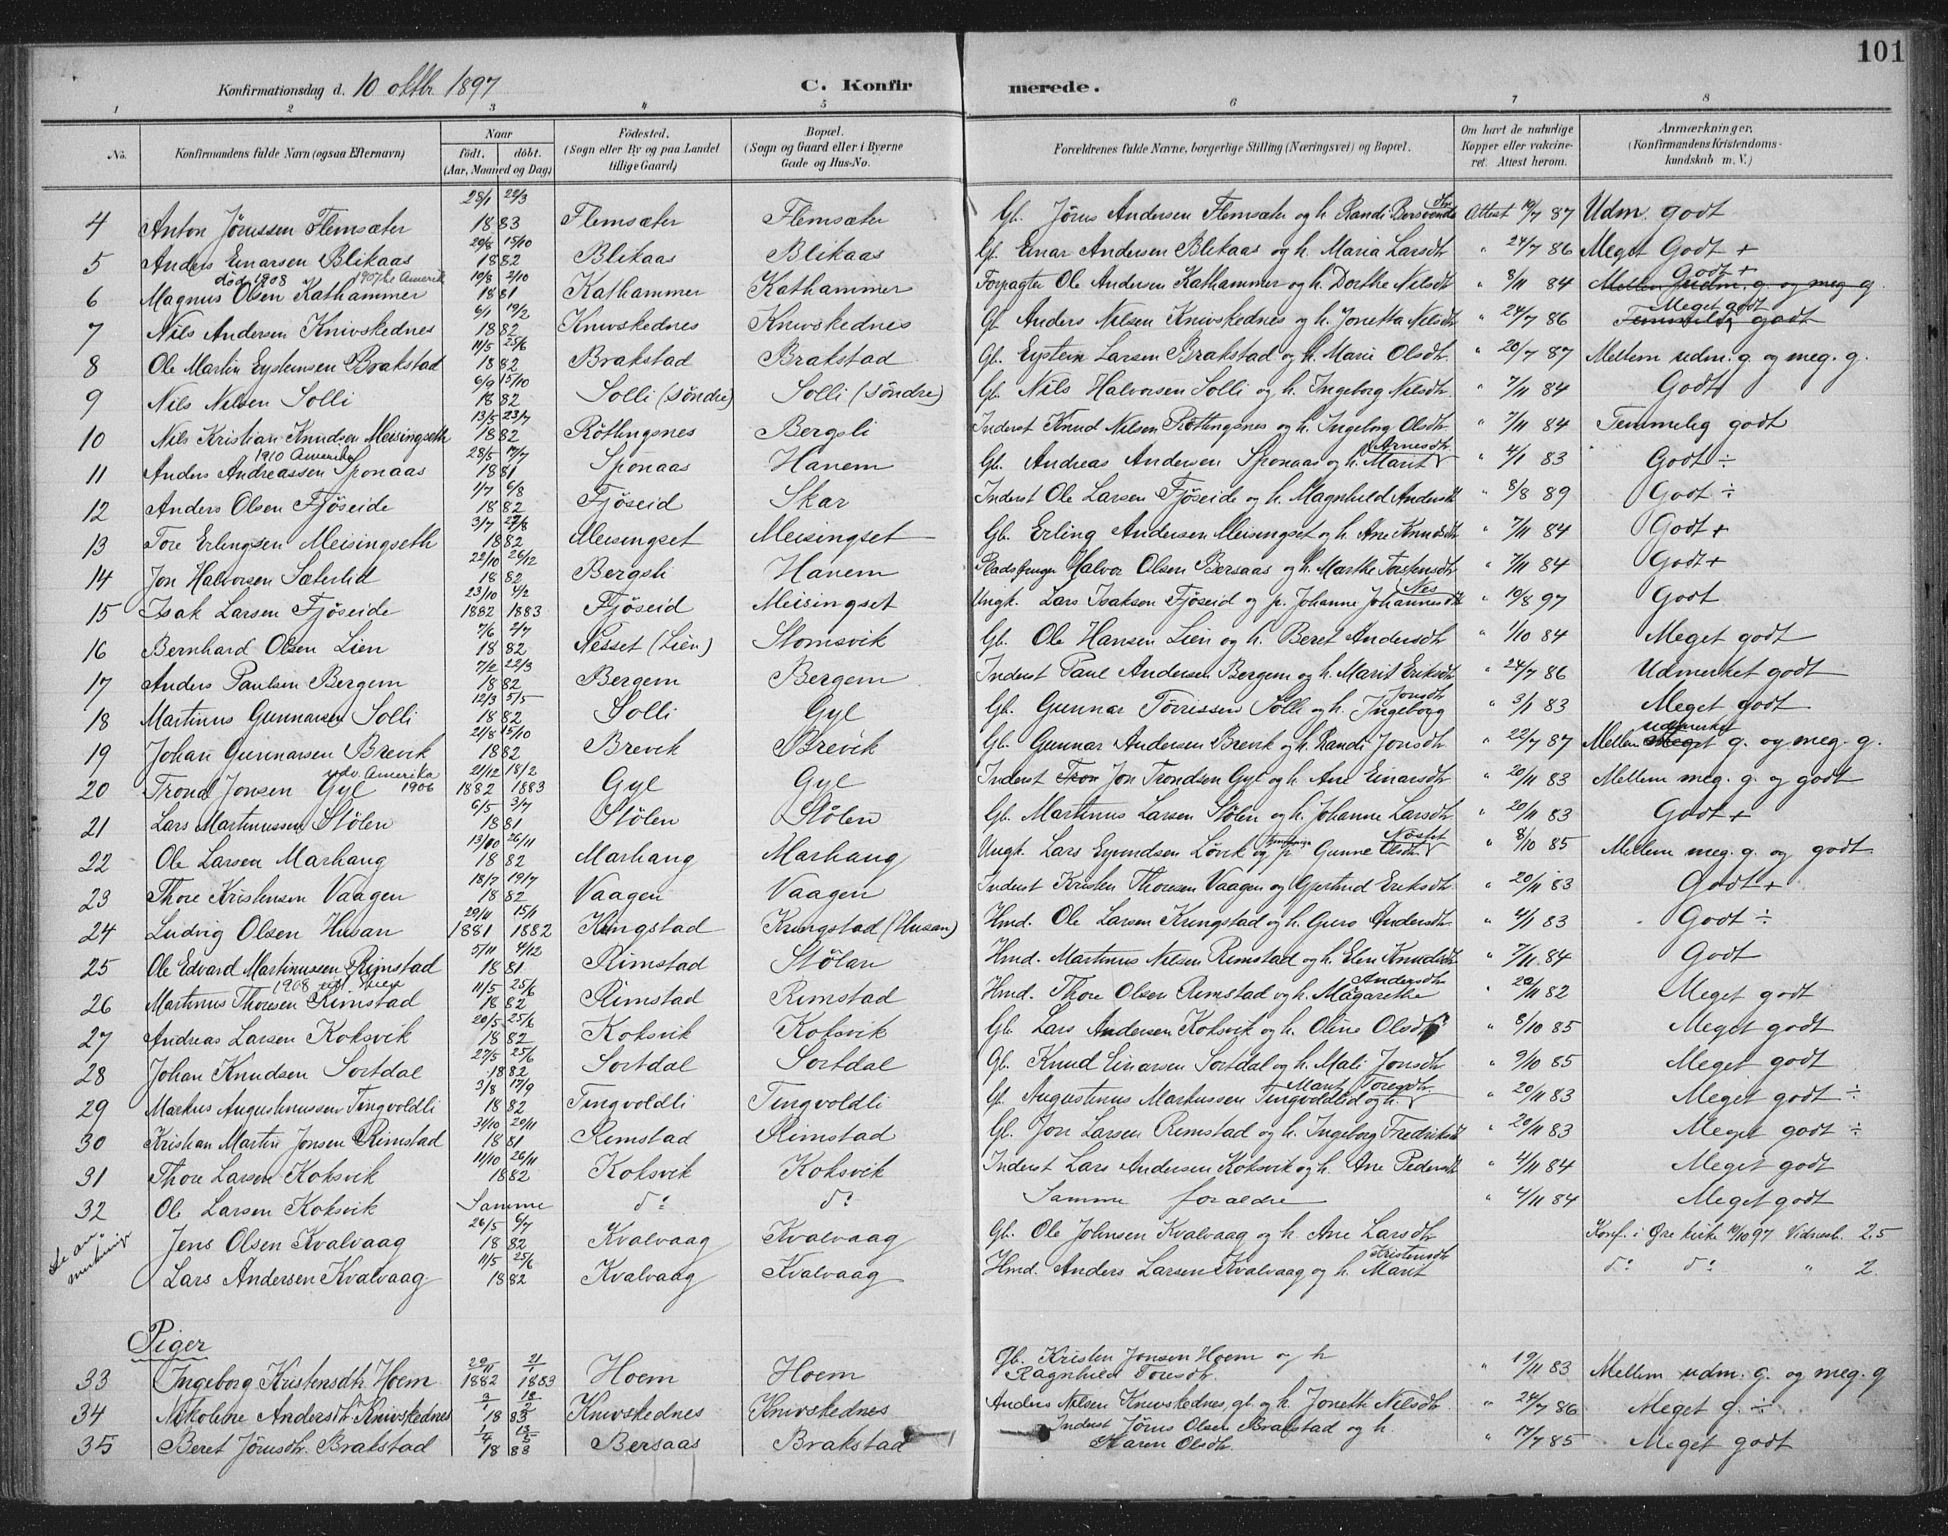 101
Konfirmationsdag d. 10 oktbr 1897 C. Konfirmerede.
1 2 3 4 5 6 7 8
No. Konfirmandens fulde Navn (ogsaa Efternavn) Naar födt. döbt. (Aar, Maaned og Dag) Födested. (Sogn eller By og paa Landet tillige Gaard) Bopæl. (Sogn og Gaard eller i Byerne Gade og Hus-No. Forældrenes fulde Navne, borgerlige Stilling (Næringsvei) og Bopæl. Om havt de naturlige Kopper eller vakcineret. Attest herom. Anmærkninger. (Konfirmandens Kristendomskundskab m. V.)
4 Anton Jörussen Flemsæter 28/1 22/3 1883 Flemsæter Flemsæter Gb. Jörus Andersen Flemsæter og h. Randi Attest 19/7 87 Udm. godt
5 Anders Einarsen Blikaas 20/8 15/10 1882 Blikaas Blikaas Gb. Einar Andersen Blikaas og h. Maria Larsdtr " 24/7 86 Meget Godt +
död 1908 1907 til Amerik
6 Magnus Olsen Kathammer 19/8 2/10 1881 Kathammer Kathammer Forpagter Ole Andersen Kathammer og h. Dorthe Nilsdtr " 8/11 84 Godt + Mellem udm. g. og meg. g.
7 Nils Andersen Knivskednes 6/1 19/2 1882 Knivskednes Knivskednes Gb. Anders Nilsen Knivskednes og h. Jonetta Nilsdtr " 24/7 86 Meget godt Temmelig godt
8 Ole Martin Eysteinsen Brakstad 11/5 25/6 1882 Brakstad Brakstad Gb. Eystein Larsen Brakstad og h. Marie Olsdtr " 20/7 87 Mellem udm. g. og meg. g.
9 Nils Nilsen Solli 6/9 15/10 1882 Solli (söndre) Solli (söndre) Gb. Nils Halvorsen Solli og h. Ingeborg Nilsdtr " 7/11 84 Godt
10 Nils Kristian Knudsen Meisingseth 13/5 23/7 1882 Röttingsnes Bergsli Inderst Knud Nilsen Röttingsnes og h. Ingeborg Olsdtr " 7/11 84 Temmelig godt
1910 Amerika
11 Anders Andreassen Sponaas 28/5 17/7 1881 Sponaas Hanem Gb. Andreas Andersen Sponaas og h. Marit Arnesdtr " 4/1 83 Godt ÷
12 Anders Olsen Fjöseide 1/7 6/8 1882 Fjöseid Skar Inderst Ole Larsen Fjöseide og h. Magnhild Andersdtr " 8/8 89 Godt ÷
13 Tore Erlingsen Meisingseth 3/7 27/8 1882 Meisingset Meisingset Gb. Erling Andersen Meisingset og h. Ane Knudsdtr " 7/11 84 Godt +
14 Jon Halvorsen Sæterlid 22/10 26/12 1882 Bergsli Hanem Pladsfenge Halvor Olsen Bersaas og h. Marthe Torstensdtr " 7/11 84 Godt +
15 Isak Larsen Fjöseide 23/10 4/2 1882 1883 Fjöseid Meisingset Ungk. Lars Isaksen Fjöseid og p. Johanne Johannesdtr Nes " 19/8 97 Godt
16 Bernhard Olsen Lien 7/6 2/7 1882 Nesset (Lien) Stomsvik Gb. Ole Hansen Lien og h. Beret Andersdtr " 1/10 84 Meget godt
17 Anders Paulsen Bergem 7/2 22/3 1882 Bergem Bergem Inderst Paul Andersen Bergem og h. Marit Eriksdtr " 24/7 86 Udmerket godt
18 Martinus Gunnarsen Solli 12/3 5/5 1882 Solli Gyl Gb. Gunnar Torrissen Solli og h. Ingeborg Jonsdtr " 3/1 83 Meget godt
19 Johan Gunnarsen Brevik 21/8 15/10 1882 Brevik Brevik Gb. Gunnar Andersen Brevik og h. Randi Jonsdtr " 22/7 87 Mellem udmerket Meget g. og meg. g.
20 Trond Jonsen Gyl udv. Amerika 1906 21/12 18/2 1882 1883 Gyl Gyl Inderst Jon Trondsen Gyl og h. Ane Einarsdtr " 20/11 83 Mellem meg. g. og godt
21 Lars Martinussen Stölen 6/5 3/7 1881 Stölen Stölen Gb. Martinus Larsen Stölen og h. Johanne Larsdtr " 20/11 83 Godt +
22 Ole Larsen Marhaug 13/10 26/11 1882 Marhaug Marhaug Ungk. Lars Eyvindsen Lövik og p. Gunne Olsdtr " 8/10 85 Mellem meg. g. og godt
23 Thore Kristensen Vaagen 18/7 19/7 1882 Vaagen Vaagen Inderst Kristen Thoresen Vaagen og Gjertrud Eriksdtr " 20/11 83 Godt +
24 Ludvig Olsen Husan 20/11 15/1 1881 1882 Kringstad Kringstad (Husan) Hmd. Ole Larsen Kringstad og h. Guro Andersdtr " 4/1 83 Godt ÷
25 Ole Edvard Martinussen Rimstad 5/11 4/12 1881 Rimstad Stölan Hmd. Martinus Nilsen Rimstad og h. Elen Knudsdtr " 7/11 84 Godt
26 Martinus Thoresen Rimstad 11/5 25/6 1882 Rimstad Rimstad Hmd. Thore Olsen Rimstad og h. Magarethe Andersdtr " 20/11 82 Meget godt
27 Andreas Larsen Koksvik 20/5 25/6 1882 Koksvik Koksvik Gb. Lars Andersen Koksvik og h. Oline Olsdtr " 8/10 85 Meget godt
28 Johan Knudsen Sortdal 27/5 25/6 1882 Sortdal Sortdal Gb. Knud Einarsen Sortdal og h. Mali Jonsdtr " 9/10 85 Meget godt
29 Markus Augustinussen Tingvoldli 3/8 17/9 1882 Tingvoldli Tingvoldli Gb. Augustinus Markussen Tingvoldlid og h. Marit Toresdtr " 20/11 83 Meget godt ÷
30 Kristian Martin Jonsen Rimstad 31/10 20/11 1881 Rimstad Rimstad Gb. Jon Larsen Rimstad og h. Ingeborg Fredriksdtr " 20/11 83 Meget godt ÷
31 Thore Larsen Koksvik 11/10 26/11 1882 Koksvik Koksvik Inderst Lars Andersen Koksvik og h. Ane Pedersdtr " 4/11 84 Meget godt
32 Ole Larsen Koksvik Samme do do Samme foraldre " 4/11 84 Meget godt
Jens Olsen Kvalvaag 26/5 6/7 1882 Kvalvaag Kvalvaag Gb. Ole Johnsen Kvalvaag og h. Ane Larsdtr Konf. i Øre kirke 10/10 97 Vidnesb. 2.5
Lars Andersen Kvalvaag 11/5 25/6 1882 Kvalvaag Kvalvaag Hmd. Anders Larsen Kvalvaag og h. Marit Kristensdtr do do " 2.
Piger
33 Ingeborg Kristensdtr. Hoem 29/11 21/1 1882 1883 Hoem Hoem Gb. Kristen Jonsen Hoem og h Ragnhild Toresdtr. " 19/11 83 Mellem udm. g. og meg. g
34 Nikoline Andersdtr. Knivskednes 3/1 18/2 1883 Knivskednes Knivskednes Anders Nilsen Knivskednes, gb. og h. Jonetta Nilsdtr. " 24/7 86 Meget g. ÷
35 Beret Jörusdtr. Brakstad 1/4 13/5 1883 Bersaas Brakstad Inderst Jörus Olsen Brakstad og h. Karen Olsdtr. " 17/7 85 Meget godt